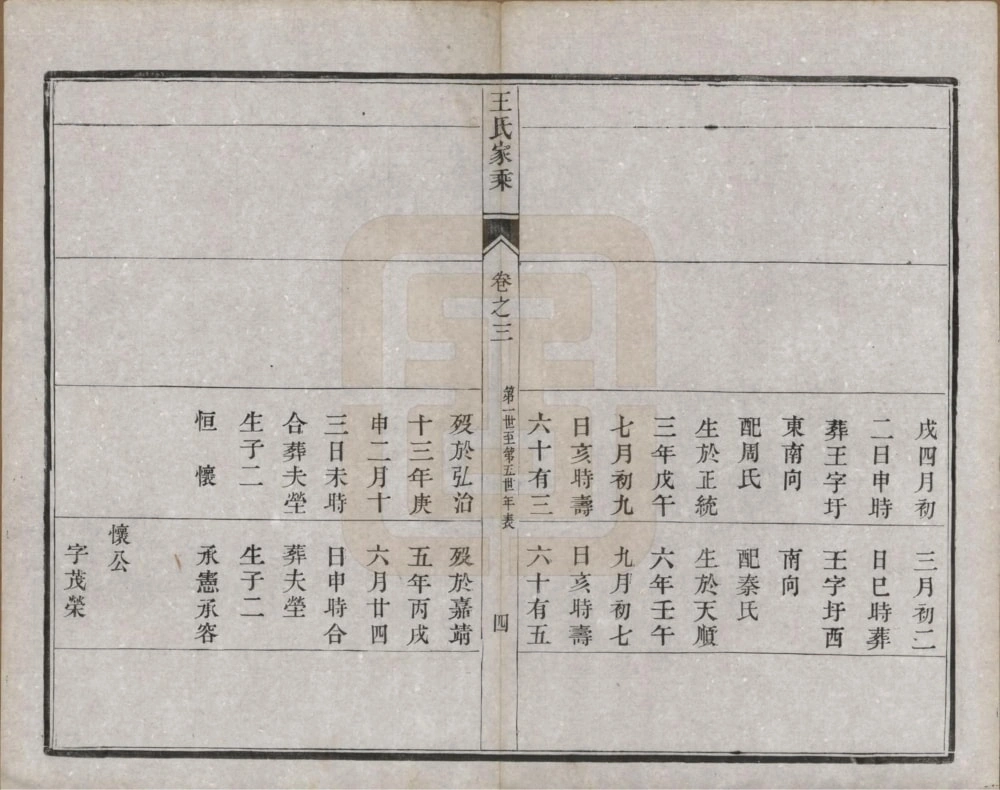 戌四月初
二日申時
葬王字圩
東南向
配周氏
生於正統
三年戊午
七月初九
日亥時壽
六十有三
三月初二
日巳時葬
王字圩西
南向
配秦氏
生於天順
六年壬午
九月初七
日亥時壽
六十有五
王氏家乘
卷之三
第一世至第五世年表
四
歿於弘治
十三年庚
申二月十
三日未時
合葬夫塋
生子二
恒 懷
歿於嘉靖
五年丙戌
六月廿四
日申時合
葬夫塋
生子二
承憲承容
懷公
字茂榮